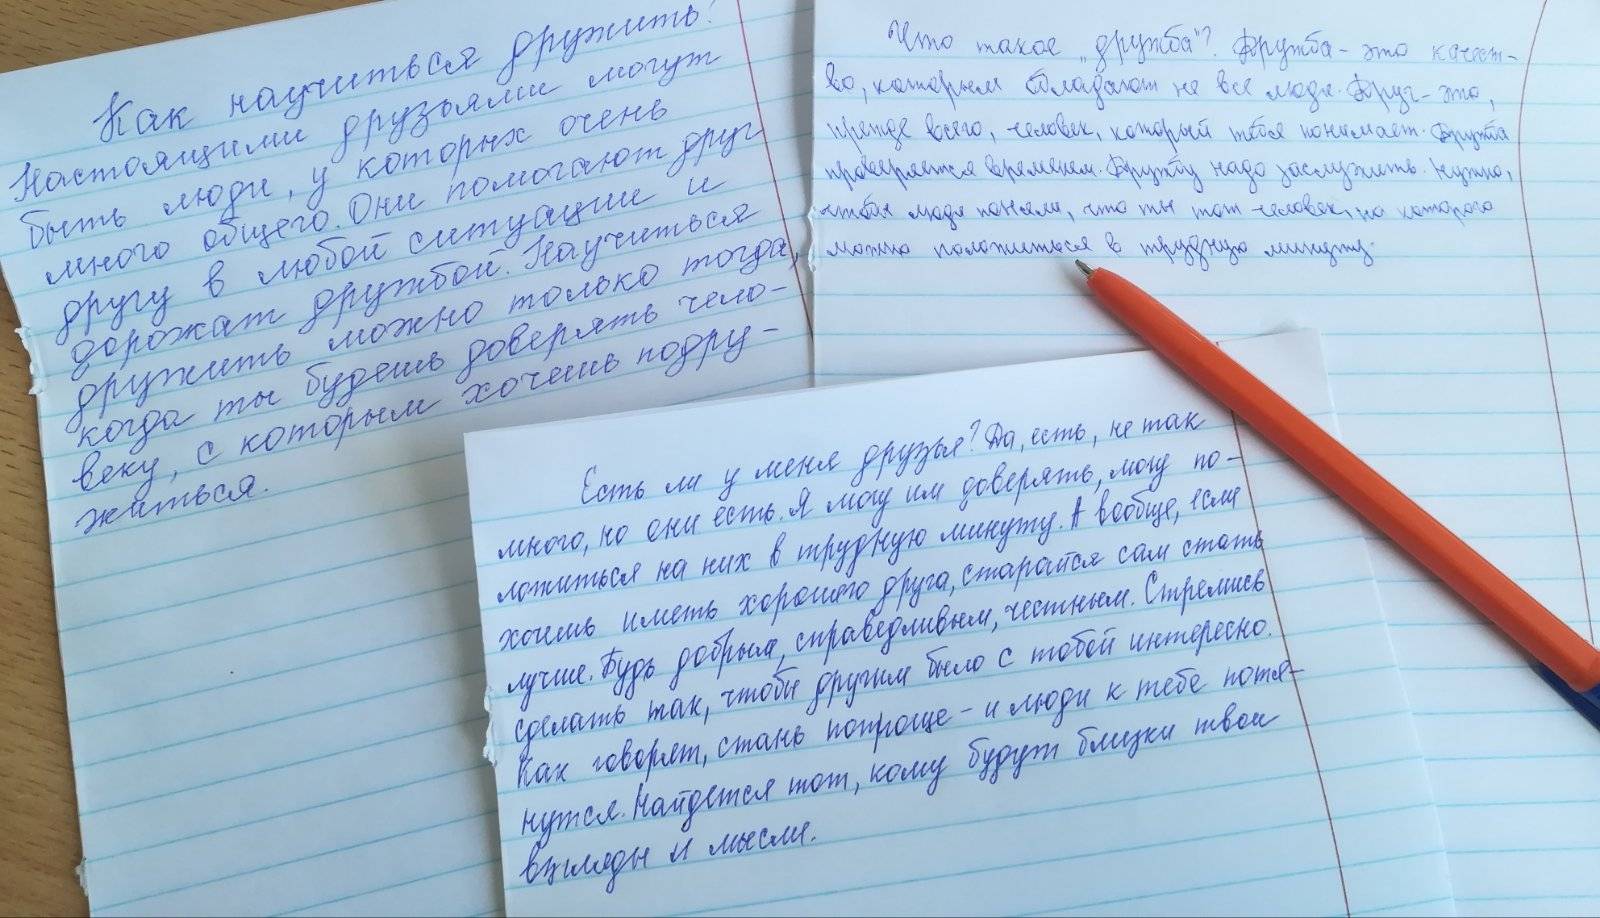 Как научиться дружить?
Настоящими друзьями могут
быть люди, у которых очень
много общего. Они помогают друг
другу в любой ситуации и
дорожат дружбой. Научиться
дружить можно только тогда,
когда ты будешь доверять чело-
веку, с которым хочешь подру-
житься.
Что такое „дружба"? Дружба - это качест-
во, которым обладают не все люди. Друг - это,
прежде всего, человек, который тебя понимает. Дружба
проверяется временем. Дружбу надо заслужить. Нужно,
чтобы люди поняли, что ты тот человек, на которого
можно положиться в трудную минуту.
Есть ли у меня друзья? Да, есть, не так
много, но они есть. Я могу им доверять, могу по-
ложиться на них в трудную минуту. А вообще, если
хочешь иметь хорошего друга, старайся сам стать
лучше. Будь добрым, справедливым, честным. Стремись
сделать так, чтобы другим было с тобой интересно.
Как говорят, стань попроще - и люди к тебе потя-
нутся. Найдется тот, кому будут близки твои
взгляды и мысли.